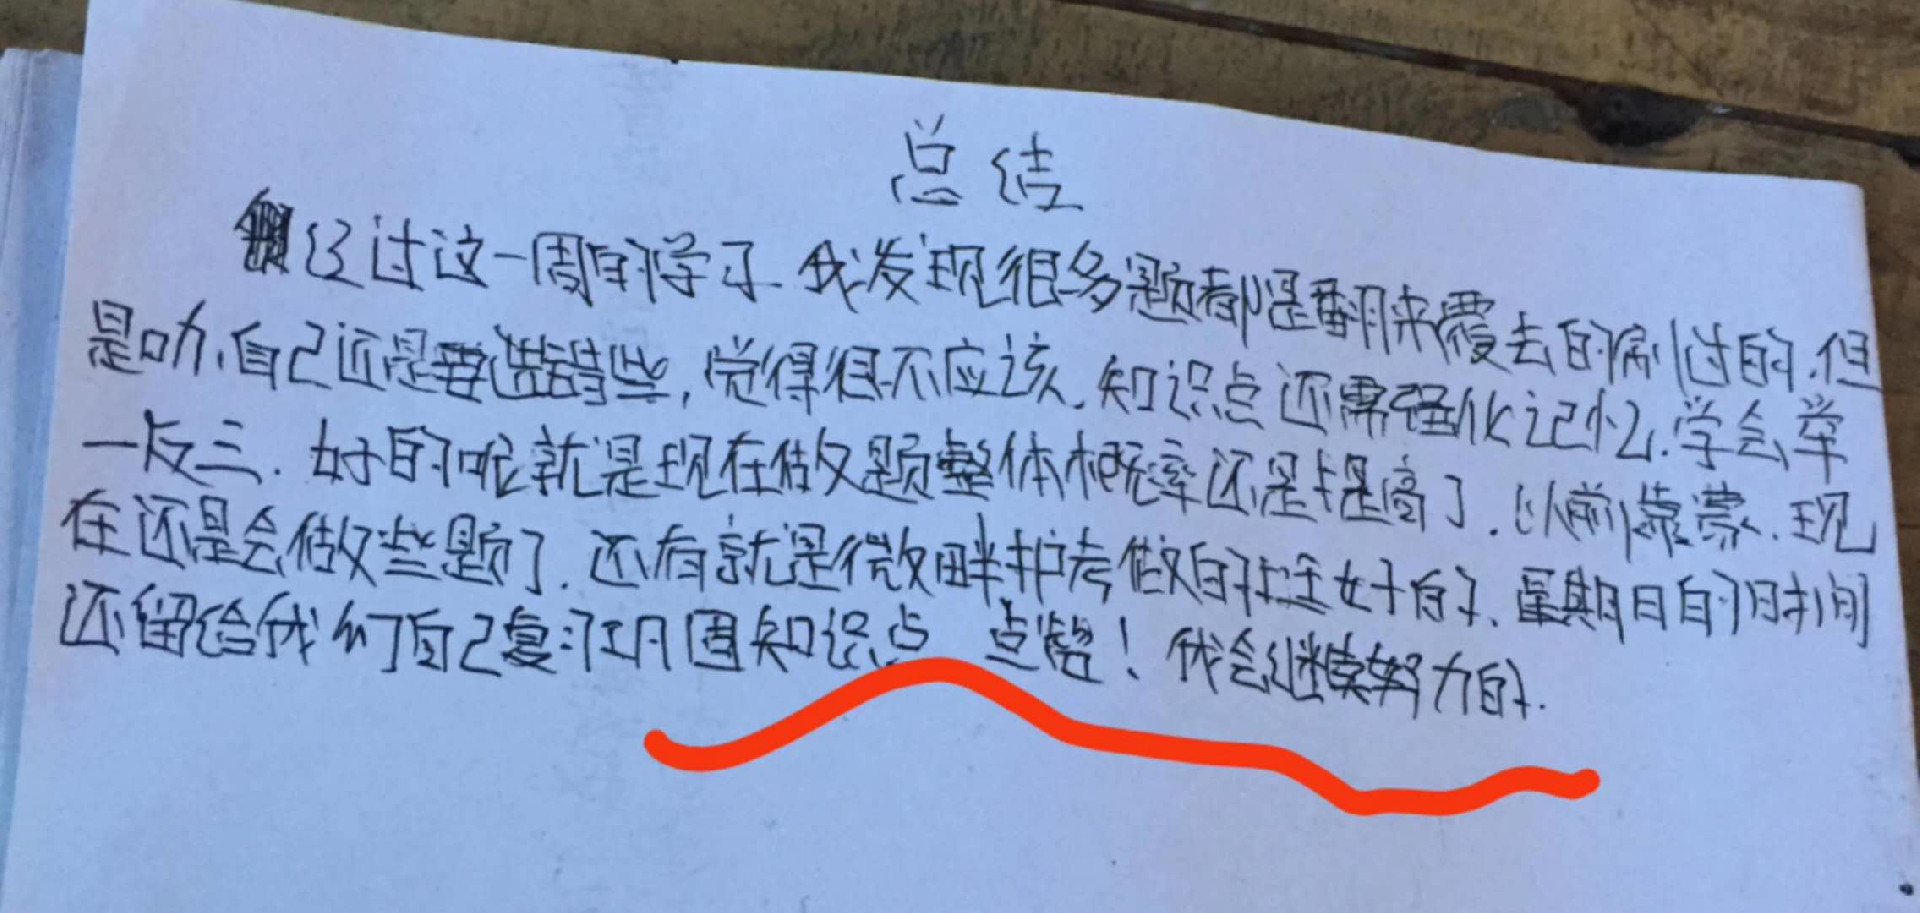 总结
经过这一周的学习.我发现很多题都是翻来覆去的刷过的.但
是呐,自己还是要选错些,觉得很不应该.知识点还需强化记忆.学会举
一反三.好的呢就是现在做题整体概率还是提高了.以前靠蒙.现
在还是会做些题了.还有就是微畔护考做的挺好的.星期日的时间
还留给我们自己复习巩固知识点 点赞!我会继续努力的.